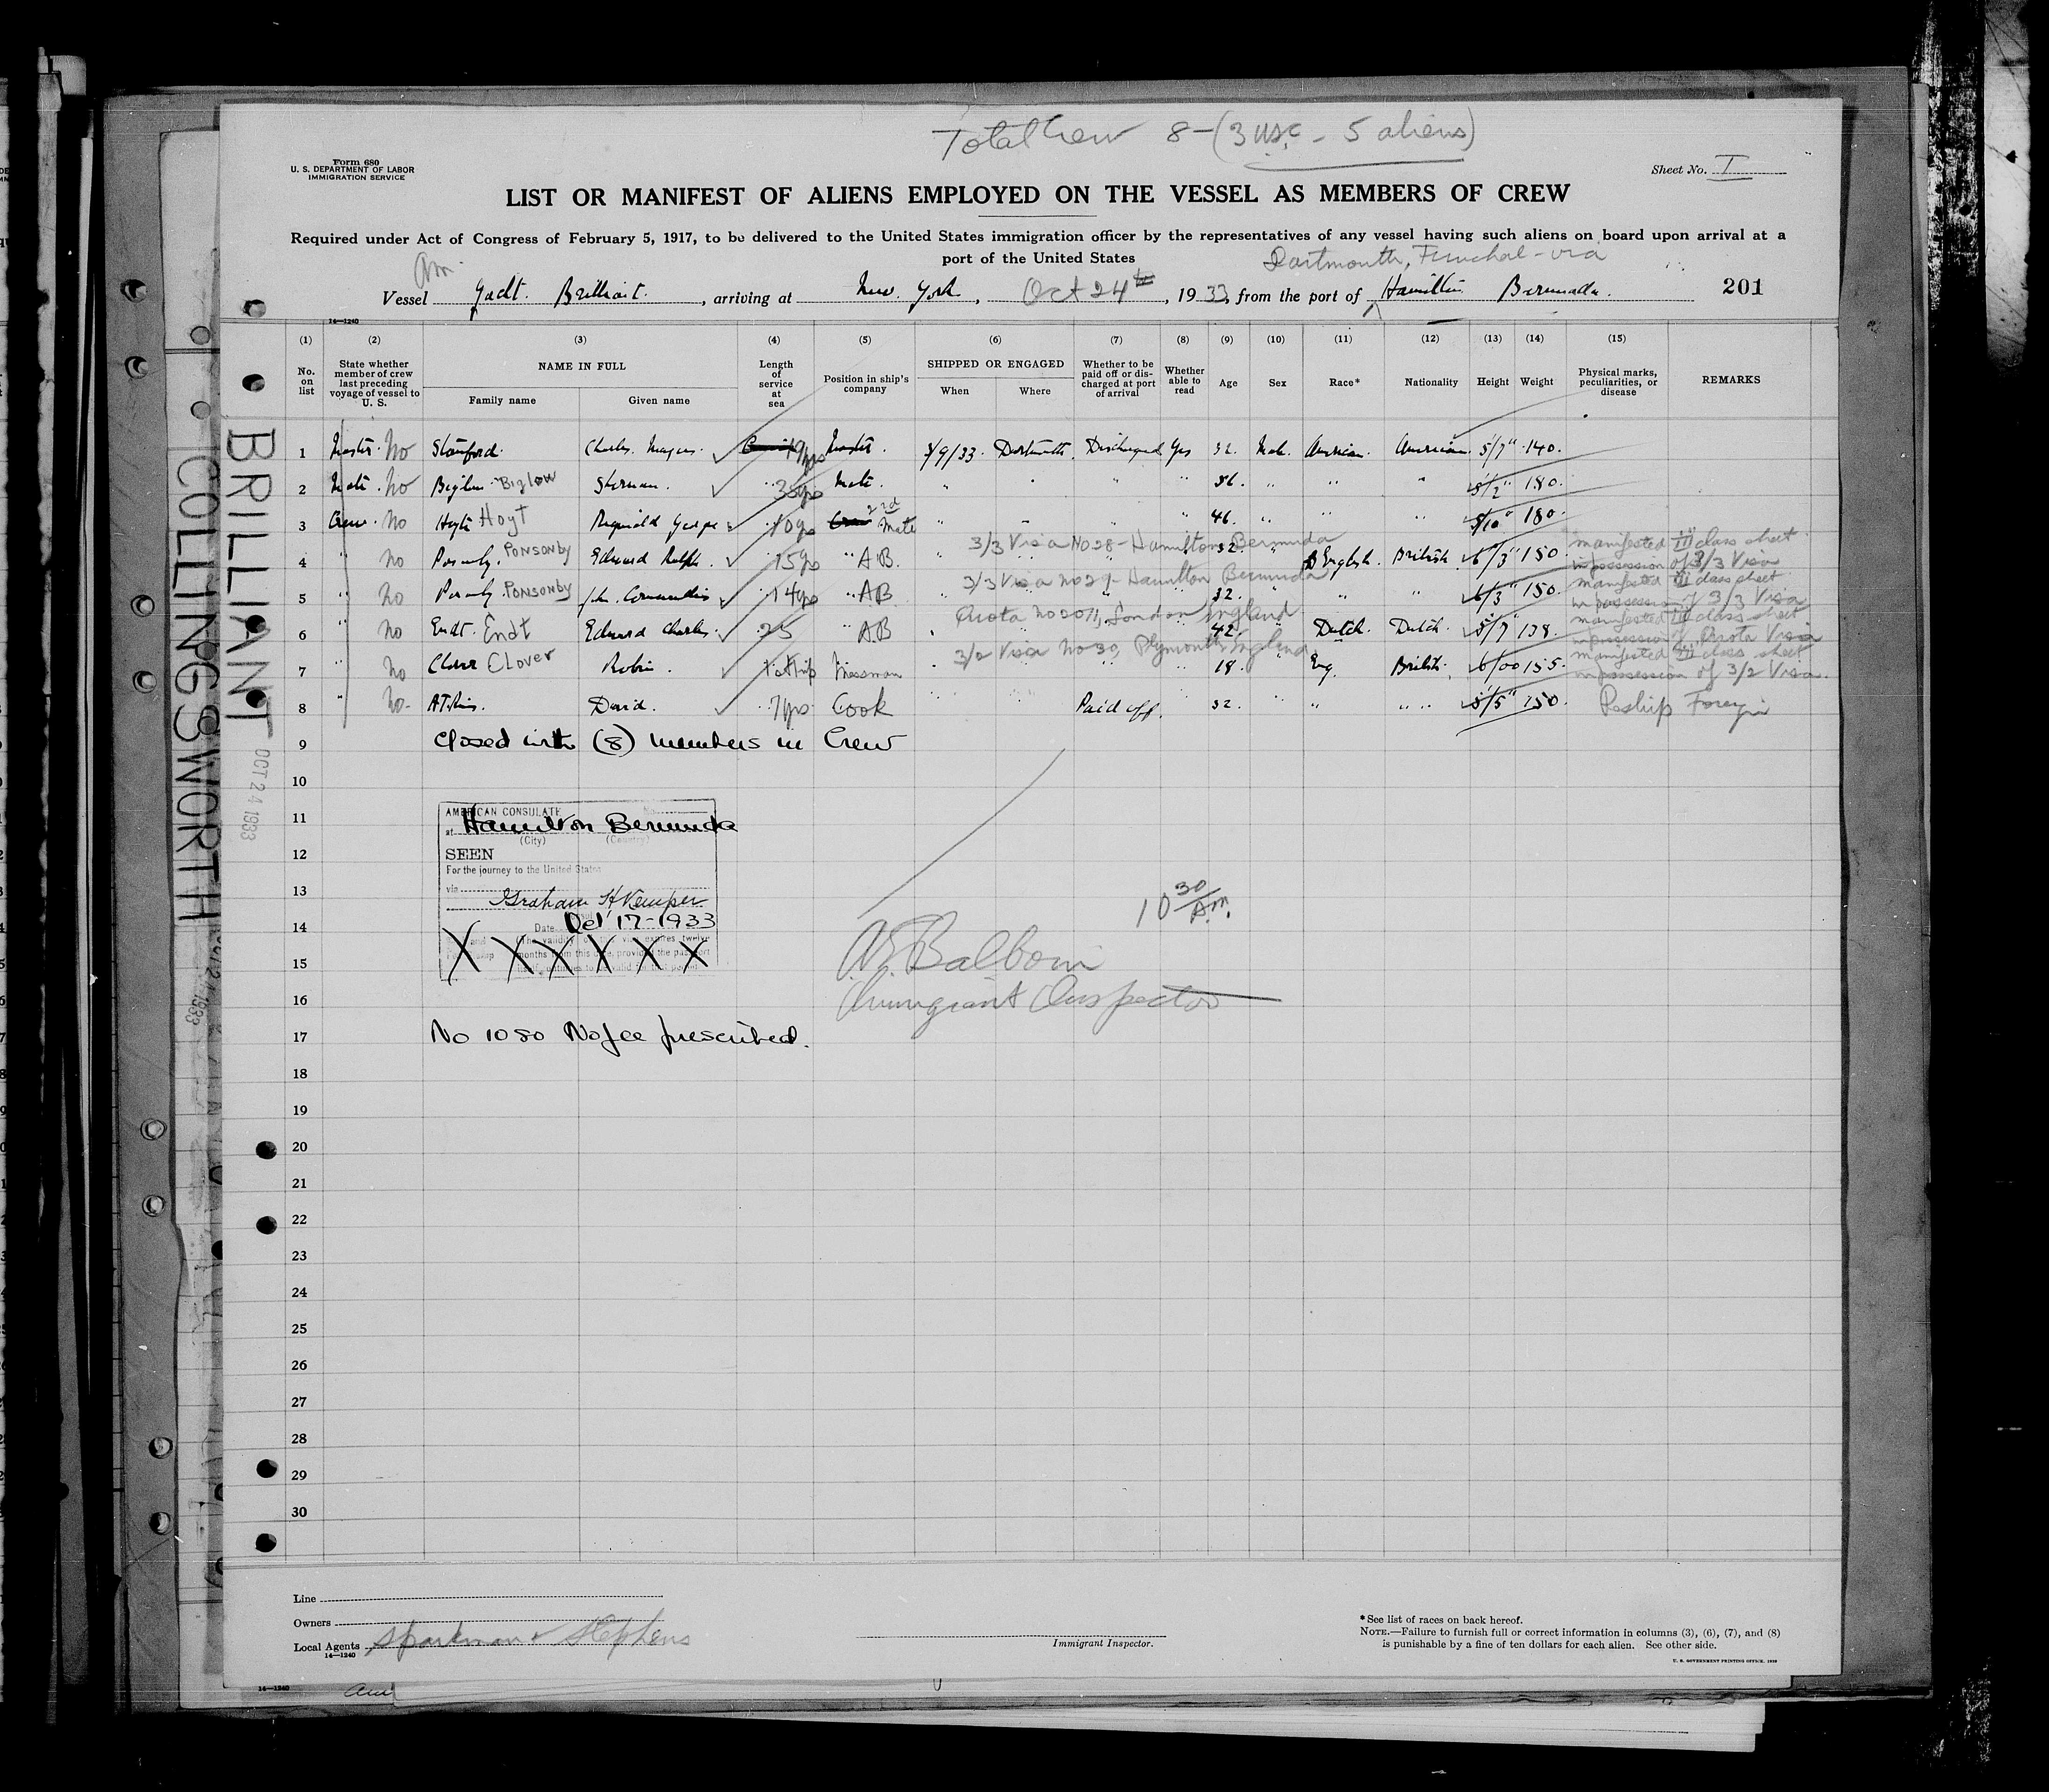 Total Crew 8-(3 USC - 5 aliens)
Form 680
U. S. DEPARTMENT OF LABOR
IMMIGRATION SERVICE
Sheet No. I
LIST OR MANIFEST OF ALIENS EMPLOYED ON THE VESSEL AS MEMBERS OF CREW
Required under Act of Congress of February 5, 1917, to be delivered to the United States immigration officer by the representatives of any vessel having such aliens on board upon arrival at a
port of the United States
Am.
Dartmouth, Funchal - via
Vessel Yacht Brilliant, arriving at New York, Oct 24th, 1933, from the port of Hamilton Bermuda. 201
14—1240
(1) (2) (3) (4) (5) (6) (7) (8) (9) (10) (11) (12) (13) (14) (15)
No. on list
State whether member of crew last preceding voyage of vessel to U. S.
NAME IN FULL
Family name
Given name
Length of service at sea
Position in ship's company
SHIPPED OR ENGAGED
When
Where
Whether to be paid off or discharged at port of arrival
Whether able to read
Age
Sex
Race*
Nationality
Height
Weight
Physical marks, peculiarities, or disease
REMARKS
1 Master. No Charles Master. 3/9/33. Dartmouth. Discharged Yes 32. Male. American. American. 5/7" 140.
2 Mate. No Biglow Sherman. 35yrs Mate. " " " " 36. " " " 5/2" 180.
3 Crew. No Hoyt Reginald George 10yrs 2nd Mate " " " " 46. " " " 5/10" 180.
3/3 Visa No 28 - Hamilton Bermuda
4 " No Ponsonby. PONSONBY Edward Ralph. 15yrs " AB. 32. English. British. 6/3" 150
manifested III class sheet
in possession of 3/3 Visa
3/3 Visa No 29 - Hamilton Bermuda
5 " No Ponsonby PONSONBY John 14yrs " AB 32. " " 6/3" 150.
manifested III class sheet
in possession of 3/3 Visa
Quota No 2071, London England
6 " No Endt. Endt Edward Charles. 25 " A.B 42. Dutch. Dutch. 5/7" 138.
manifested III class sheet
in possession of Quota Visa
3/2 Visa No 30, Plymouth England
7 " No Clover CLover Robin. 1st trip Messman 18. Eng. British. 6/00 155.
manifested III class sheet
in possession of 3/2 Visa.
8 " No. Atkins. David. 7yrs. Cook " " Paid off. " 32. " " " " 5/5" 150. Reship Foreign
9 Closed with (8) members in Crew
10
11
12
13
14
15
16
17 No 1080 No fee prescribed.
18
19
20
21
22
23
24
25
26
27
28
29
30
AMERICAN CONSULATE
at Hamilton Bermuda
(City) (Country)
SEEN
For the journey to the United States
via
Graham H Kemper
Date Oct 17-1933
X X X X X X
10 30 A.m.
Immigrant Inspector
BRILLIANT
OCT 24 1933
COLLINGSWORTH
Line
Owners
Local Agents Sparkman & Stephens
14—1240
Immigrant Inspector.
*See list of races on back hereof.
NOTE.—Failure to furnish full or correct information in columns (3), (6), (7), and (8)
is punishable by a fine of ten dollars for each alien. See other side.
14—1240